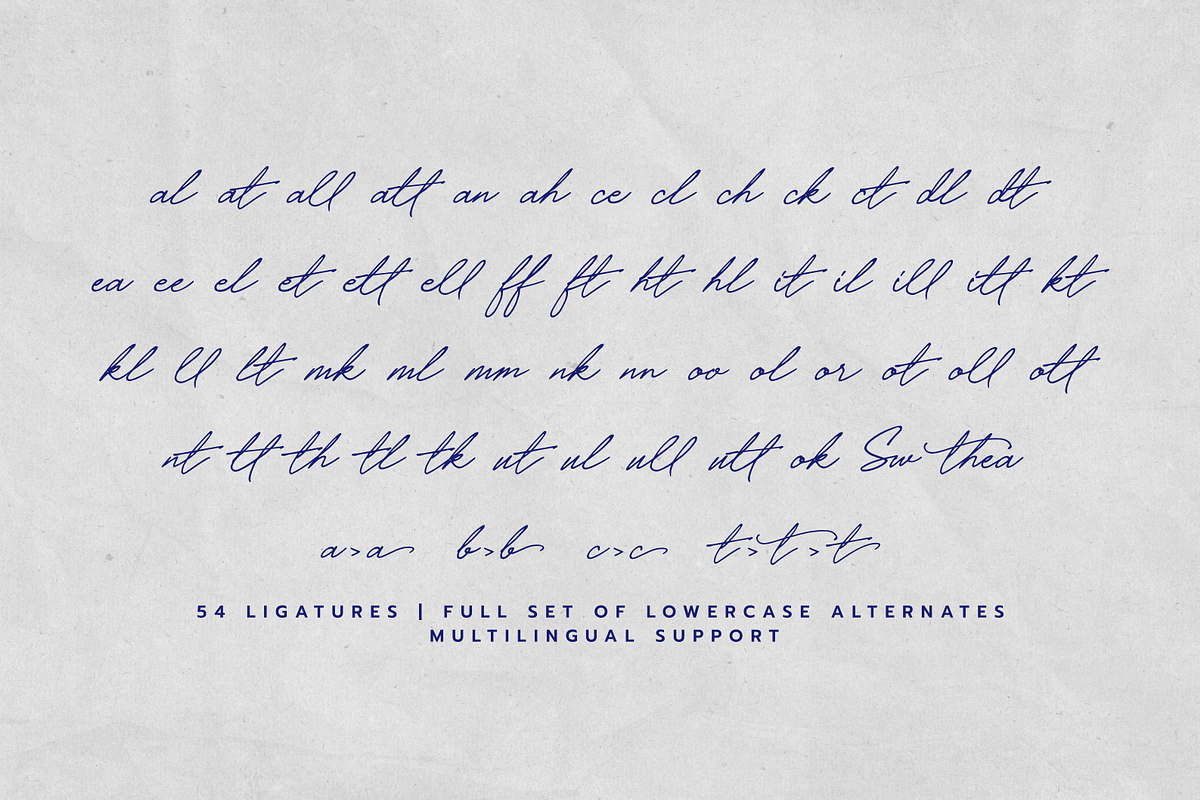 al at all att an ah ce cl ch ck ct dl dt
ea ee el et ett ell ff ft ht hl it il ill itt kt
kl ll lt mk ml mm nk nn oo ol or ot oll ott
nt tt th tl tk ut ul ull utt ok Sw thea
a>a b>b c>c t>t>t
54 LIGATURES | FULL SET OF LOWERCASE ALTERNATES
MULTILINGUAL SUPPORT